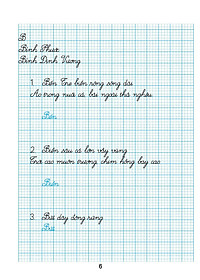 B
Bình Phước
Bình Định Vương
1. Bến Tre biển rộng sông dài
Ao trong nuôi cá, bãi ngoài thả nghêu
Bến
2. Biển sâu cá lớn vẫy vùng
Trời cao muôn trượng chim hồng bay cao
Biển
3. Bứt dây động rừng
Bứt
6